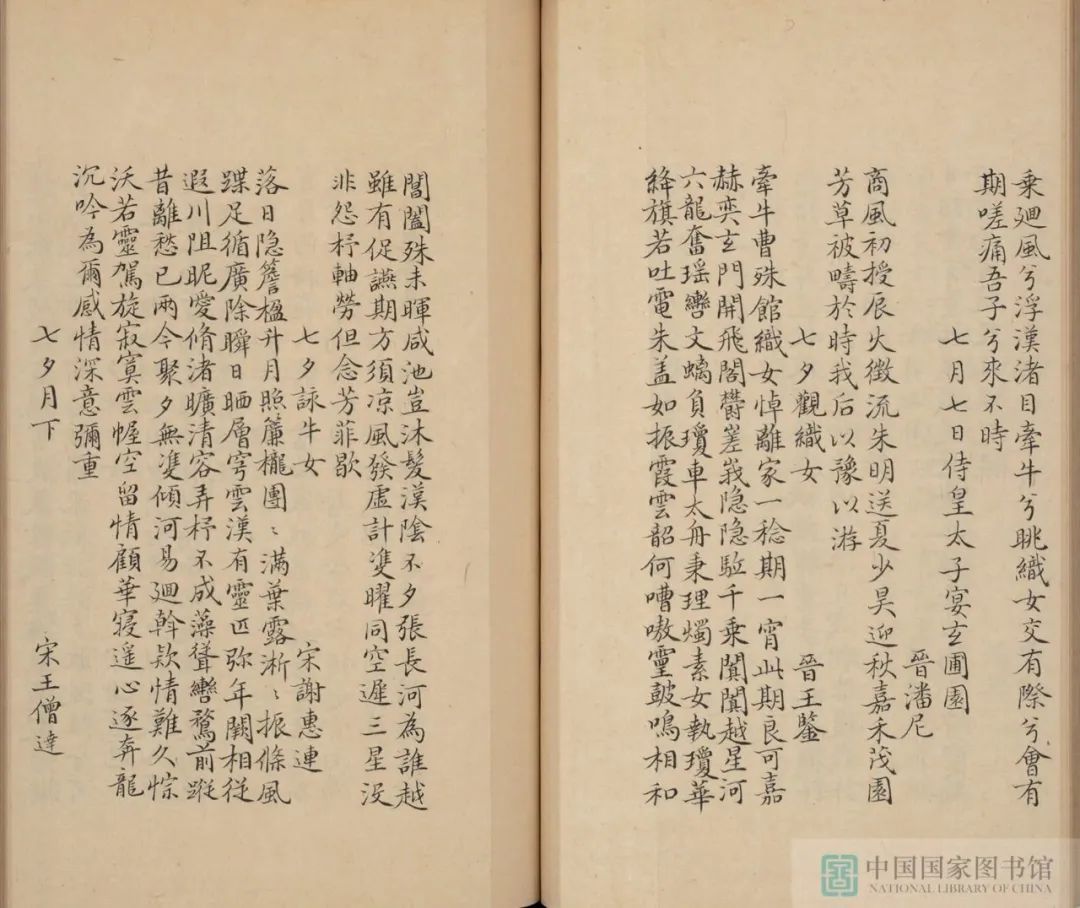 乘廻風兮浮漢渚目牽牛兮眺織女交有際兮會有
期嗟痛吾子兮來不時
七月七日侍皇太子宴玄圃園
晉潘尼
商風初授辰火微流朱明送夏少昊迎秋嘉禾茂園
芳草被疇於時我后以豫以游
七夕觀織女 晉王鑒
牽牛曹殊館織女悼離家一稔期一宵此期良可嘉
赫奕玄門開飛閣鬱嵳峩隐隐駈千乗闐闐越星河
六龍奮瑶轡文螭負瓊車太舟秉理燭素女執瓊華
絳旗若吐電朱盖如振霞雲韶何嘈嗷靈鼓鳴相和
誾闔殊未暉咸池豈沐髮漢陰不夕張長河為誰越
雖有促讌期方須凉風發虚計雙曜同空遲三星没
非怨杼軸勞但念芳菲歇
七夕詠牛女 宋謝惠連
落日隐簷楹升月照簾櫳團〻滿葉露淅〻振條風
蹀足循廣除瞬日曬層穹雲漢有靈匹弥年闕相従
遐川阻昵愛脩渚曠清容弄杼不成藻聳轡驁前蹤
昔離愁已兩今聚夕無雙傾河易廻斡欵情難久悰
沃若靈駕旋寂寞雲幄空留情顧華寝遥心逐奔龍
沉吟為爾感情深意彌重
七夕月下 宋王僧達
中国国家图书馆
NATIONAL LIBRARY OF CHINA